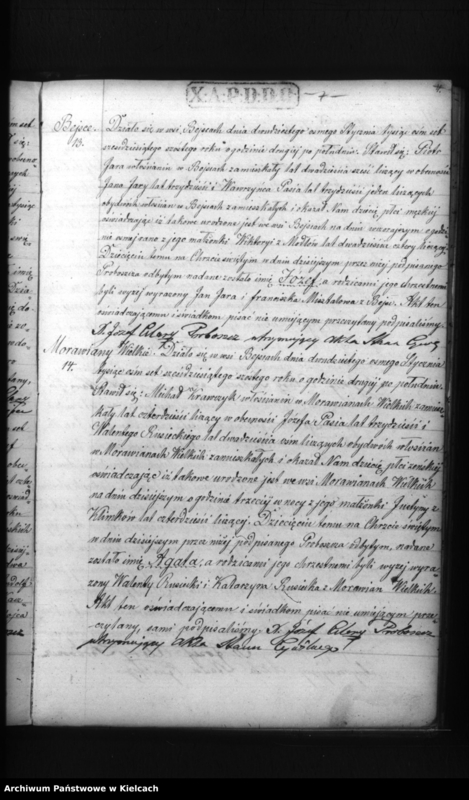 X.A.P.D.D.D.
Bejsce.
13.
Działo się w wsi Bejscach dnia dwudziestego ósmego Stycznia tysiąc ośm set
sześdziesiątego szóstego roku o godzinie drugiej po południu. Stawił się: Piotr
Jara włościanin w Bejscach zamieszkały lat dwadzieścia sześć liczący w obecności
Jana Jary lat trzydzieści i Wawrzyńca Pasia lat trzydzieści jeden liczących
obydwóch włościan w Bejscach zamieszkałych i okazał Nam dziecię płci męzkiej
oświadczając iż takowe urodzone jest we wsi Bejscach na dniu wczorajszym o godzi-
nie z jego małżonki Wiktoryi z lat dwadzieścia cztery liczącej.
Dziecięciu temu na Chrzcie świętym w dniu dzisiejszym przez niżej podpisanego
Proboszcza odbytym nadane zostało imię Józef, a rodzicami jego chrzestnemi
byli wyżej wyrażony Jan Jara i Franciszka z Bejsc. Akt ten
oświadczającemu i świadkom pisać nie umiejącym przeczytany podpisaliśmy.
X. Józef Proboszcz utrzymujący Akta Stanu Cywil
Morawiany Wielkie.
14.
Działo się w wsi Bejscach dnia dwudziestego ósmego Stycznia
tysiąc ośm set sześdziesiątego szóstego roku o godzinie drugiej po południu.
Stawił się: Michał Krawczyk włościanin w Morawianach Wielkich zamiesz-
kały lat czterdzieści liczący w obecności Józefa Pasia lat trzydzieści i
Walentego Rusieckiego lat dwadzieścia ośm liczących obydwóch włościan
w Morawianach Wielkich zamieszkałych i okazał Nam dziecię płci żeńskiej
oświadczając iż takowe urodzone jest we wsi Morawianach Wielkich
na dniu dzisiejszym o godzinie trzeciej w nocy z jego małżonki Justyny z
Klimków lat czterdzieści liczącej. Dziecięciu temu na Chrzcie świętym
w dniu dzisiejszym przez niżej podpisanego Proboszcza odbytym, nadane
zostało imię Agata, a rodzicami jego chrzestnemi byli wyżej wyra-
żony Walenty Rusiecki i Katarzyna Rusiecka z Morawian Wielkich.
Akt ten oświadczającemu i świadkom pisać nie umiejącym prze-
czytany, sami podpisaliśmy. X. Józef Proboszcz
utrzymujący Akta Stanu Cywilnego
Archiwum Państwowe w Kielcach